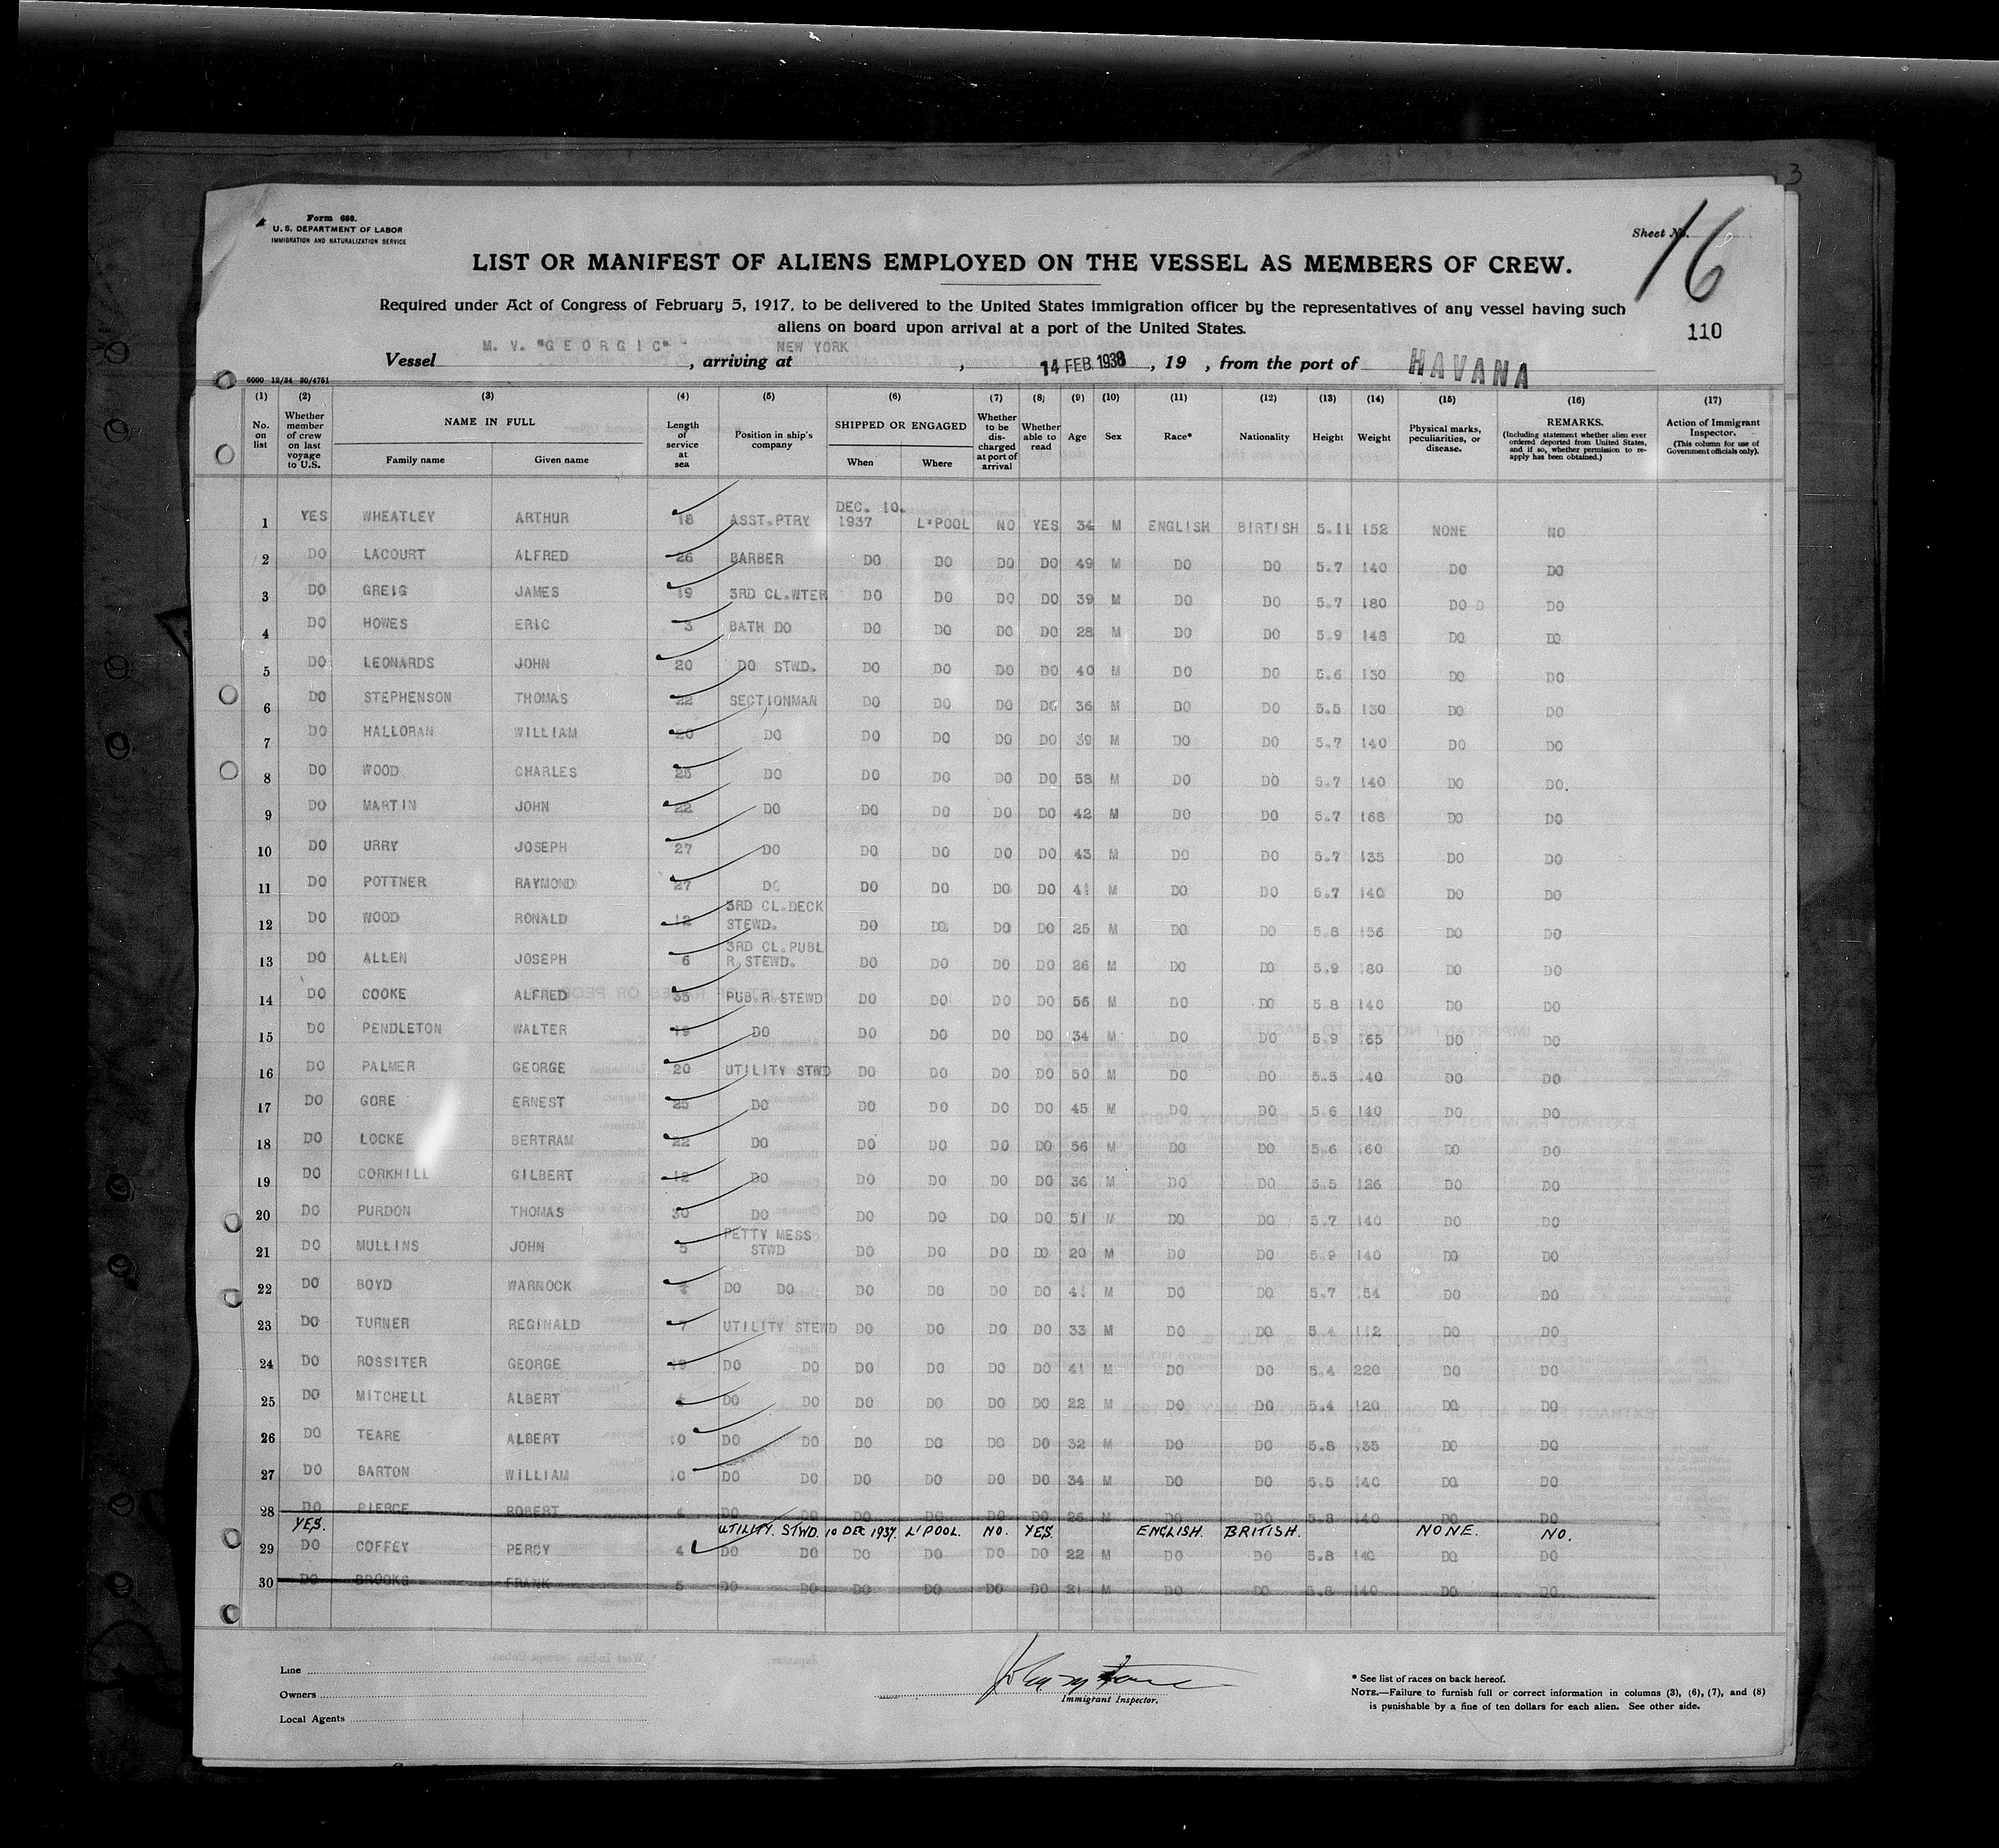 3
Form 680.
U. S. DEPARTMENT OF LABOR
IMMIGRATION AND NATURALIZATION SERVICE
Sheet No. 16
LIST OR MANIFEST OF ALIENS EMPLOYED ON THE VESSEL AS MEMBERS OF CREW.
Required under Act of Congress of February 5, 1917, to be delivered to the United States immigration officer by the representatives of any vessel having such
aliens on board upon arrival at a port of the United States.
110
Vessel M. V. "GEORGIC", arriving at NEW YORK, 14 FEB. 1938, 19 , from the port of HAVANA
6000 12/34 30/4751
(1) (2) (3) (4) (5) (6) (7) (8) (9) (10) (11) (12) (13) (14) (15) (16) (17)
No. on list | Whether member of crew on last voyage to U.S. | NAME IN FULL Family name Given name | Length of service at sea | Position in ship's company | SHIPPED OR ENGAGED When Where | Whether to be discharged at port of arrival | Whether able to read | Age | Sex | Race* | Nationality | Height | Weight | Physical marks, peculiarities, or disease. | REMARKS. (Including statement whether alien ever ordered deported from United States, and if so, whether permission to reapply has been obtained.) | Action of Immigrant Inspector. (This column for use of Government officials only).
1 YES WHEATLEY ARTHUR 18 ASST.PTRY DEC. 10. 1937 L'POOL NO YES 34 M ENGLISH BIRTISH 5.11 152 NONE NO
2 DO LACOURT ALFRED 26 BARBER DO DO DO DO 49 M DO DO 5.7 140 DO DO
3 DO GREIG JAMES 19 3RD CL.WTER DO DO DO DO 39 M DO DO 5.7 180 DO D DO
4 DO HOWES ERIC 3 BATH DO DO DO DO DO 28 M DO DO 5.9 148 DO DO
5 DO LEONARDS JOHN 20 DO STWD. DO DO DO DO 40 M DO DO 5.6 130 DO DO
6 DO STEPHENSON THOMAS 22 SECTIONMAN DO DO DO DO 36 M DO DO 5.5 130 DO DO
7 DO HALLORAN WILLIAM 20 DO DO DO DO DO 39 M DO DO 5.7 140 DO DO
8 DO WOOD CHARLES 25 DO DO DO DO DO 58 M DO DO 5.7 140 DO DO.
9 DO MARTIN JOHN 22 DO DO DO DO DO 42 M DO DO 5.7 168 DO DO
10 DO URRY JOSEPH 27 DO DO DO DO DO 43 M DO DO 5.7 135 DO DO
11 DO POTTNER RAYMOND 27 DO DO DO DO DO 41 M DO DO 5.7 140 DO DO
12 DO WOOD RONALD 12 3RD CL.DECK STEWD. DO DO DO DO 25 M DO DO 5.8 156 DO DO
13 DO ALLEN JOSEPH 6 3RD CL.PUBL R.STEWD. DO DO DO DO 26 M DO DO 5.9 180 DO DO
14 DO COOKE ALFRED 35 PUB.R STEWD DO DO DO DO 56 M DO DO 5.8 140 DO DO
15 DO PENDLETON WALTER 19 DO DO DO DO DO 34 M DO DO 5.9 165 DO DO
16 DO PALMER GEORGE 20 UTILITY STWD DO DO DO DO 50 M DO DO 5.5 140 DO DO
17 DO GORE ERNEST 25 DO DO DO DO DO 45 M DO DO 5.6 140 DO DO
18 DO LOCKE BERTRAM 22 DO DO DO DO DO 56 M DO DO 5.6 160 DO DO
19 DO CORKHILL GILBERT 12 DO DO DO DO DO 36 M DO DO 5.5 126 DO DO
20 DO PURDON THOMAS 30 DO DO DO DO DO 51 M DO DO 5.7 140 DO DO
21 DO MULLINS JOHN 5 PETTY MESS STWD DO DO DO DO 20 M DO DO 5.9 140 DO DO
22 DO BOYD WARNOCK DO DO DO DO DO DO 41 M DO DO 5.7 154 DO DO
23 DO TURNER REGINALD 7 UTILITY STEWD DO DO DO DO 33 M DO DO 5.4 112 DO DO
24 DO ROSSITER GEORGE 19 DO DO DO DO DO DO 41 M DO DO 5.4 220 DO DO
25 DO MITCHELL ALBERT DO DO DO DO DO DO 22 M DO DO 5.4 120 DO DO
26 DO TEARE ALBERT 10 DO DO DO DO DO DO 32 M DO DO 5.8 135 DO DO
27 DO BARTON WILLIAM 10 DO DO DO DO DO DO 34 M DO DO 5.5 140 DO DO
28 DO PIERCE ROBERT 4 DO DO DO DO DO DO 26 M DO DO 5.8 140 DO DO
YES. UTILITY. STWD. 10 DEC 1937. L'POOL. NO. YES. ENGLISH. BRITISH. NONE. NO.
29 DO COFFEY PERCY 4 DO DO DO DO DO DO 22 M DO DO 5.8 140 DO DO
30 DO BROOKS FRANK 5 DO DO DO DO DO DO 21 M DO DO 5.8 140 DO DO
Line
Owners
Local Agents
Immigrant Inspector.
* See list of races on back hereof.
NOTE.—Failure to furnish full or correct information in columns (3), (6), (7), and (8)
is punishable by a fine of ten dollars for each alien. See other side.